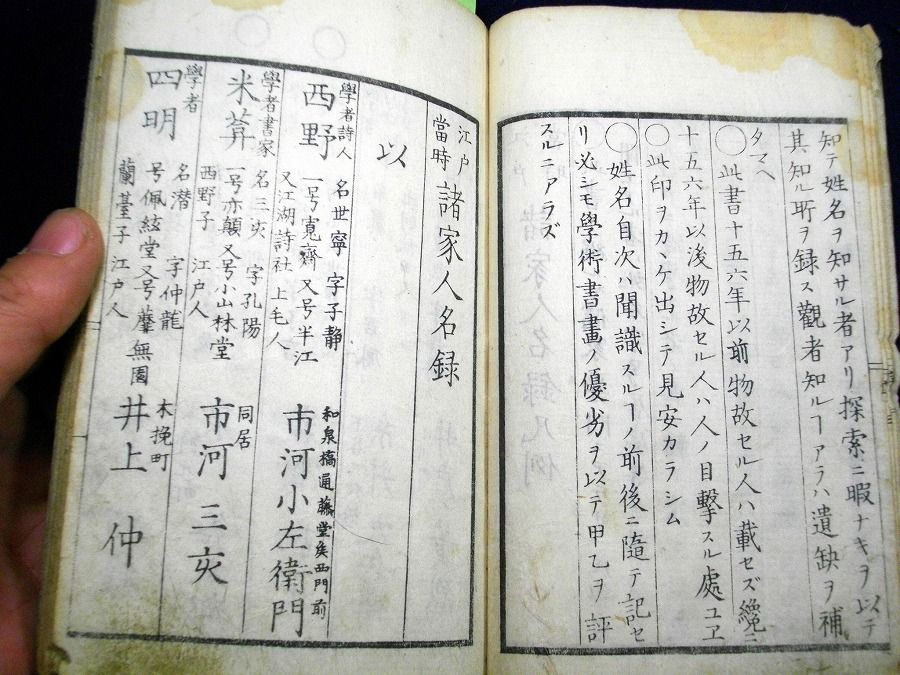 知テ姓名ヲ知サル者アリ探索ニ暇ナキヲ以テ
其知ル所ヲ録ス觀者知ルヿアラハ遺缺ヲ補
タマヘ
◯此書十五六年以前物故セル人ハ載セズ纔ニ
十五六年以後物故セル人ハ人ノ目撃スル處ユヱ
◯此印ヲカヽケ出シテ見安カラシム
◯姓名目次ハ聞識スルヿノ前後ニ隨テ記セ
リ必シモ學術書畫ノ優劣ヲ以テ甲乙ヲ評
スルニアラズ
江戸當時諸家人名録
以
學者詩人
西野
名世寧 字子静
一号寛齋 又号半江
又江湖詩社 上毛人
和泉橋通藤堂矦西門前
市河小左衛門
學者書家
米葊
名三亥 字孔陽
一号亦顛又号小山林堂
西野子 江戸人
同居
市河三亥
學者
四明
名潜 字仲龍
号佩絃堂又号蘿無園
蘭臺子江戸人
木挽町
井上仲